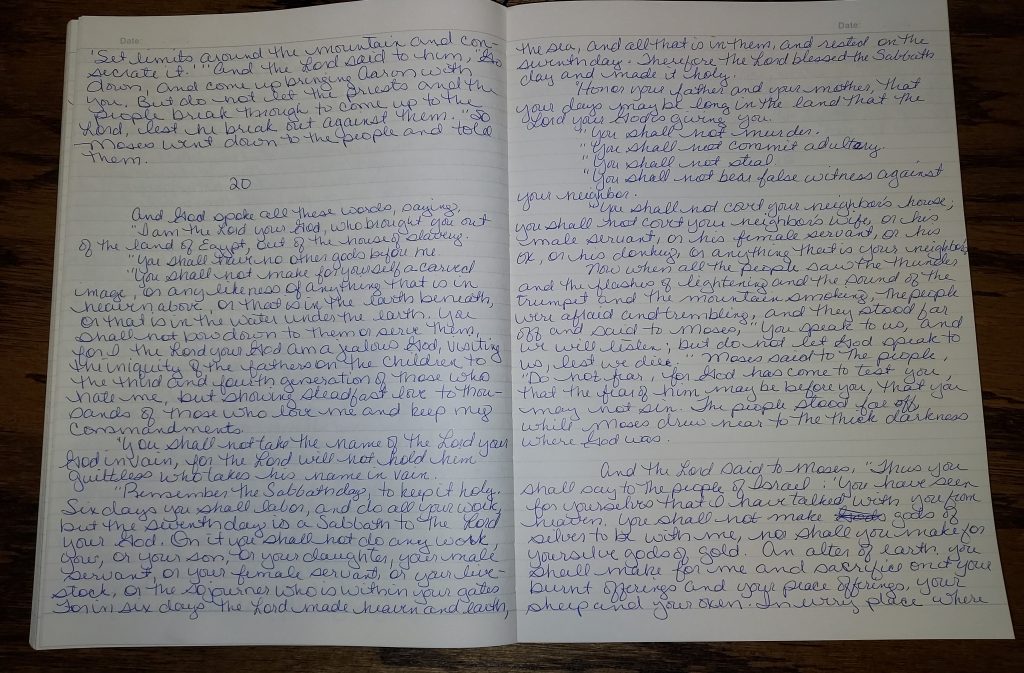 Date
'Set limits around the mountain and con-
secrate it.'" And the Lord said to him, "Go
down, and come up bringing Aaron with
you. But do not let the priests and the
people break through to come up to the
Lord, lest he break out against them. "So
Moses went down to the people and told
them.
20
And God spoke all these words, saying,
"I am the Lord your God, who brought you out
of the land of Egypt, out of the house of slavery.
"You shall have no other gods before me.
"You shall not make for yourself a carved
image, or any likeness of anything that is in
heaven above, or that is in the earth beneath,
or that is in the water under the earth. You
shall not bow down to them or serve them,
for I the Lord your God am a jealous God, visiting
the iniquity of the fathers on the children to
the third and fourth generation of those who
hate me, but showing steadfast love to thou-
sands of those who love me and keep my
commandments.
"You shall not take the name of the Lord your
God in vain, for the Lord will not hold them
guiltless who takes his name in vain.
"Remember the Sabbath day, to keep it holy.
Six days you shall labor, and do all your work,
but the seventh day is a Sabbath to the Lord
your God. On it you shall not do any work,
you, or your son, or your daughter, your male
servant, or your female servant, or your live-
stock, or the sojourner who is within your gates.
For in six days the Lord made heaven and earth,
Date:
the sea, and all that is in them, and rested on the
seventh day. Therefore the Lord blessed the Sabbath
day and made it holy.
"Honor your father and your mother, that
your days may be long in the land that the
Lord your God is giving you.
"You shall not murder.
"You shall not commit adultery.
"You shall not steal.
"You shall not bear false witness against
your neighbor.
"You shall not covet your neighbor's house;
you shall not covet your neighbor's wife, or his
male servant, or his female servant, or his
ox, or his donkey, or anything that is your neighbor's
Now when all the people saw the thunder
and the flashes of lightening and the sound of the
trumpet and the mountain smoking, the people
were afraid and trembling, and they stood far
off and said to Moses, "You speak to us, and
we will listen; but do not let God speak to
us, lest we die." Moses said to the people,
"Do not fear, for God has come to test you,
that the fear of him may be before you, that you
may not sin. The people stood far off
while Moses drew near to the thick darkness
where God was.
And the Lord said to Moses, "Thus you
shall say to the people of Israel: 'You have seen
for yourselves that I have talked with you from
heaven. You shall not make gods of
silver to be with me, nor shall you make for
yourselve gods of gold. An alter of earth you
shall make for me and sacrifice on it your
burnt offerings and your peace offerings, your
sheep and your oxen. In every place where